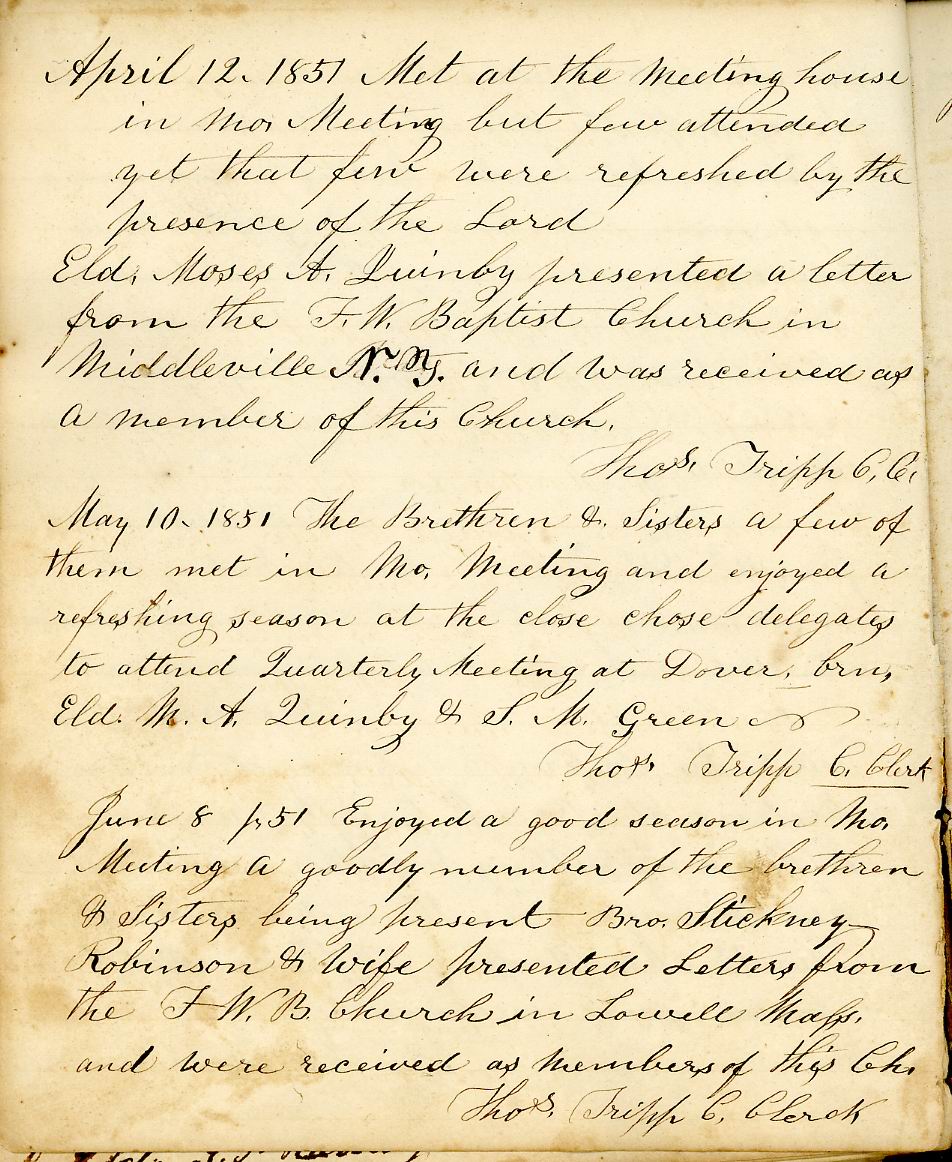 April 12. 1851 Met at the Meeting house
in Mo. Meeting but few attended
yet that few were refreshed by the
presence of the Lord
Eld. Moses A. Quinby presented a letter
from the F. W. Baptist Church in
Middleville N. Y. and was received as
a member of this Church.
Thos. Tripp C. C.
May 10. 1851 The Brethren & Sisters a few of
them met in Mo. Meeting and enjoyed a
refreshing season at the close chose delegates
to attend Quarterly Meeting at Dover. brn,
Eld. M. A. Quinby & S. M. Green
Thos. Tripp C. Clerk
June 8 1851 Enjoyed a good season in Mo.
Meeting a goodly number of the brethren
& Sisters being present Bro. Stickney
Robinson & Wife presented Letters from
the F. W. B. Church in Lowell Mass.
and were received as members of this Ch.
Thos. Tripp C. Clerck